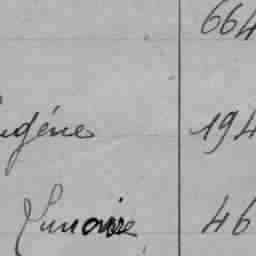 664
ugénie 194
Lunaire 46